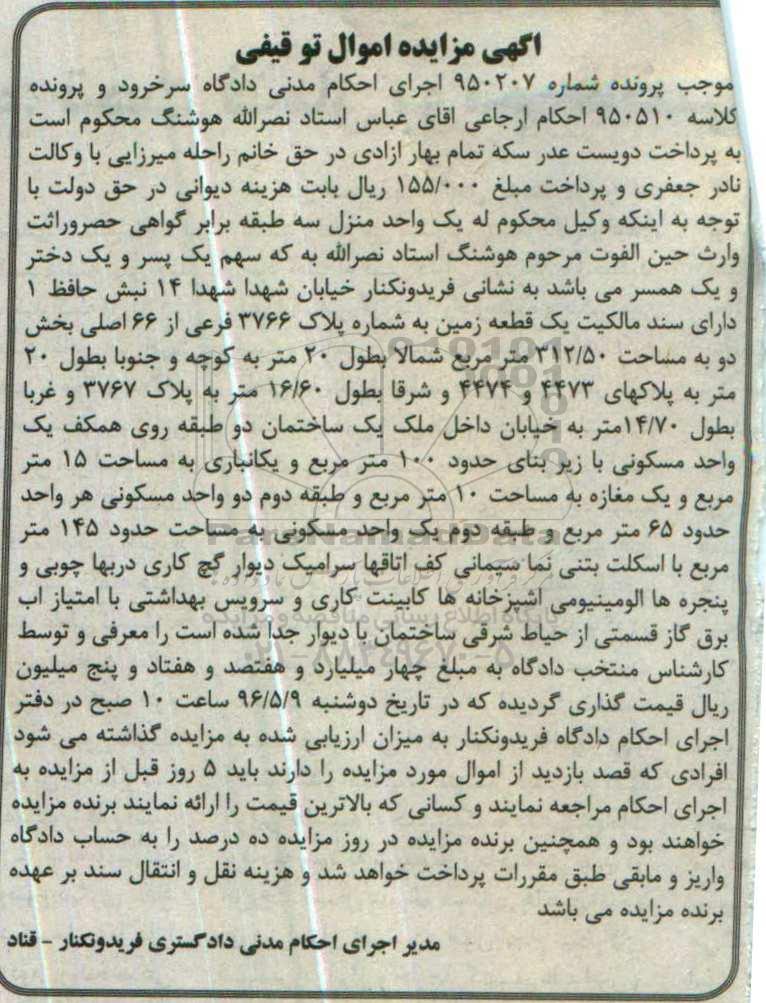 اگهی مزایده اموال تو قیفی
موجب پرونده شماره ۹۵۰۲۰۷ اجرای احکام مدنی دادگاه سرخرود و پرونده
کلاسه ۹۵۰۵۱۰ احکام ارجاعی اقای عباس استاد نصرالله هوشنگ محکوم است
به پرداخت دویست عدر سکه تمام بهار ازادی در حق خانم راحله میرزایی با وکالت
نادر جعفری و پرداخت مبلغ ۱۵۵/۰۰۰ ریال بابت هزینه دیوانی در حق دولت با
توجه به اینکه وکیل محکوم له یک واحد منزل سه طبقه برابر گواهی حصروراثت
وارث حین الفوت مرحوم هوشنگ استاد نصرالله به که سهم یک پسر و یک دختر
و یک همسر می باشد به نشانی فریدونکنار خیابان شهدا شهدا ۱۴ نبش حافظ ۱
دارای سند مالکیت یک قطعه زمین به شماره پلاک ۳۷۶۶ فرعی از ۶۶ اصلی بخش
دو به مساحت ۳۱۲/۵۰ متر مربع شمالا بطول ۲۰ متر به کوچه و جنوبا بطول ۲۰
متر به پلاکهای ۴۴۷۳ و ۴۴۷۴ و شرقا بطول ۱۶/۶۰ متر به پلاک ۳۷۶۷ و غربا
بطول ۱۴/۷۰متر به خیابان داخل ملک یک ساختمان دو طبقه روی همکف یک
واحد مسکونی با زیر بنای حدود ۱۰۰ متر مربع و یکانباری به مساحت ۱۵ متر
مربع و یک مغازه به مساحت ۱۰ متر مربع و طبقه دوم دو واحد مسکونی هر واحد
حدود ۶۵ متر مربع و طبقه دوم یک واحد مسکونی به مساحت حدود ۱۴۵ متر
مربع با اسکلت بتنی نما سیمانی کف اتاقها سرامیک دیوار گچ کاری دربها چوبی و
پنجره ها الومینیومی اشپزخانه ها کابینت کاری و سرویس بهداشتی با امتیاز اب
برق گاز قسمتی از حیاط شرقی ساختمان با دیوار جدا شده است را معرفی و توسط
کارشناس منتخب دادگاه به مبلغ چهار میلیارد و هفتصد و هفتاد و پنج میلیون
ریال قیمت گذاری گردیده که در تاریخ دوشنبه ۹۶/۵/۹ ساعت ۱۰ صبح در دفتر
اجرای احکام دادگاه فریدونکنار به میزان ارزیابی شده به مزایده گذاشته می شود
افرادی که قصد بازدید از اموال مورد مزایده را دارند باید ۵ روز قبل از مزایده به
اجرای احکام مراجعه نمایند و کسانی که بالاترین قیمت را ارائه نمایند برنده مزایده
خواهند بود و همچنین برنده مزایده در روز مزایده ده درصد را به حساب دادگاه
واریز و مابقی طبق مقررات پرداخت خواهد شد و هزینه نقل و انتقال سند بر عهده
برنده مزایده می باشد
مدیر اجرای احکام مدنی دادگستری فریدونکنار - قناد